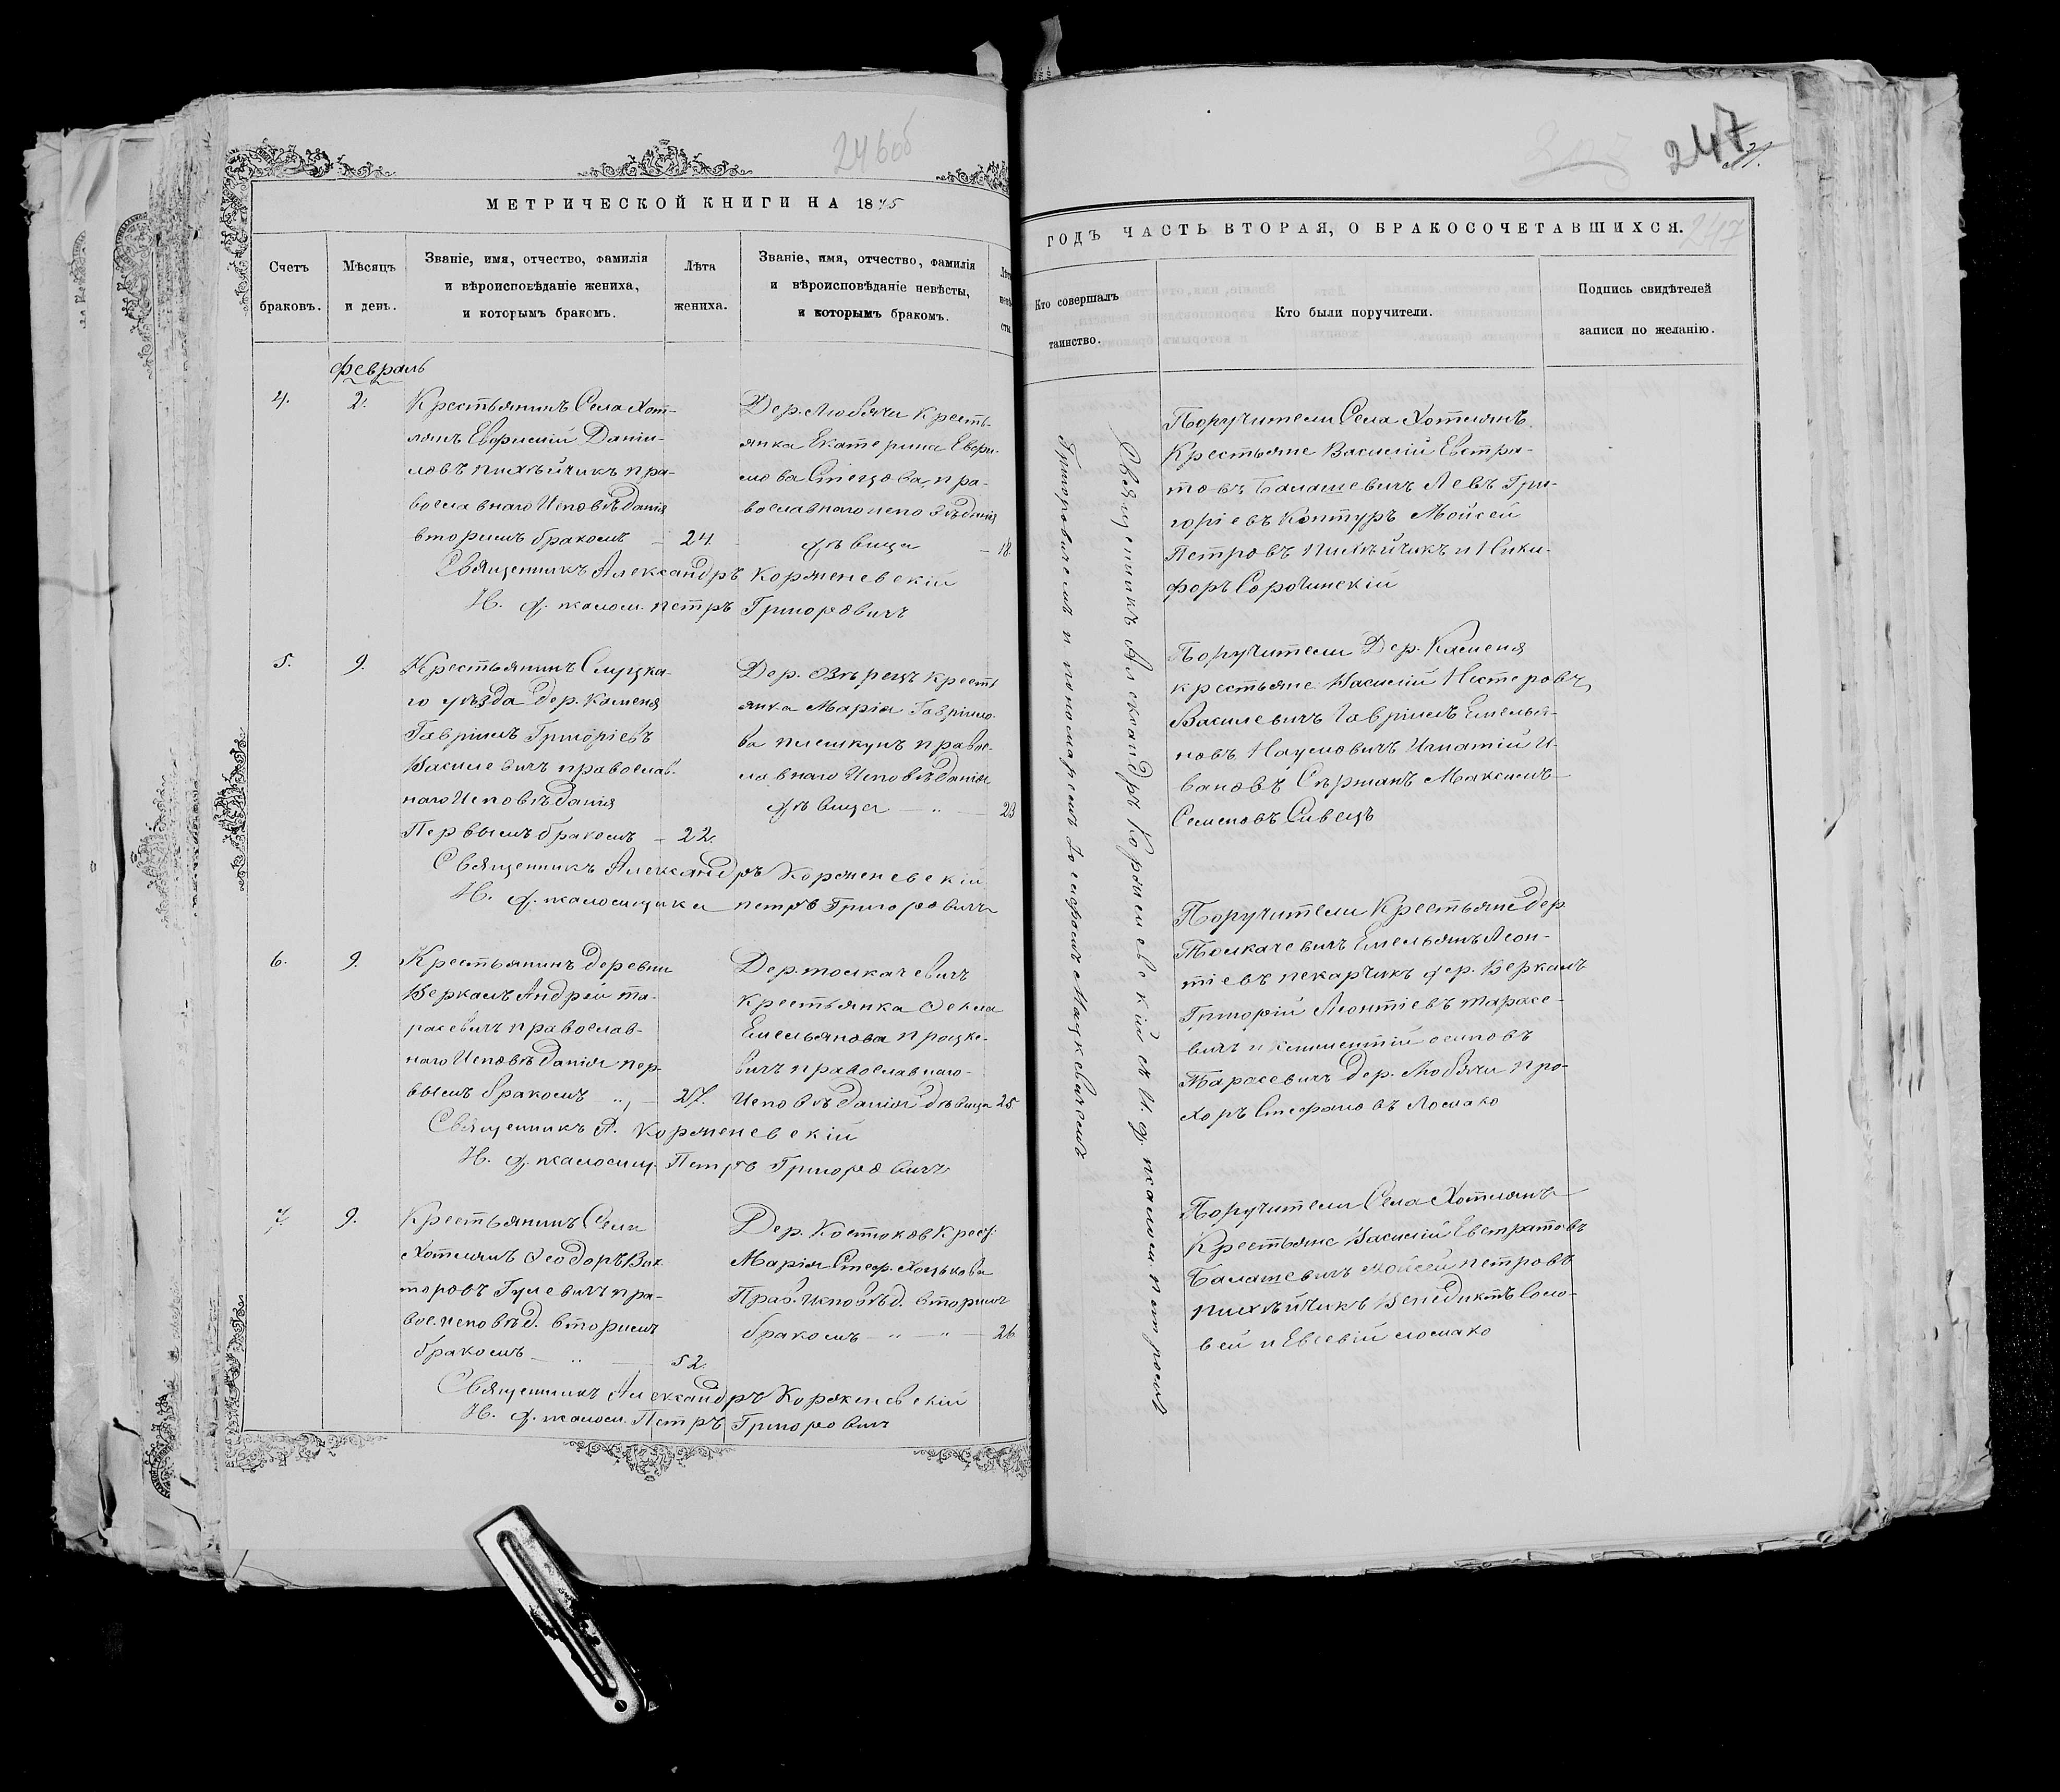 246об
МЕТРИЧЕСКОЙ КНИГИ НА 1875
Счетъ
браковъ.
Мѣсяцъ
и день.
Званіе, имя, отчество, фамилія
и вѣроисповѣданіе жениха,
и которымъ бракомъ.
Лѣта
жениха.
Званіе, имя, отчество, фамилія
и вѣроисповѣданіе невѣсты,
и которымъ бракомъ.
Февраль
4. 2.
Крестьянинъ Села Хот-
лянъ Евфимій Даніи-
ловъ Пихѣйчикъ пра-
вославнаго Исповѣданія
вторымъ бракомъ — 24.
Дер. Любячи Кресть-
янка Екатерина
ва пра-
вославнаго исповѣданія
дѣвица — 18.
Священникъ Александръ Корженевскій
И. д. псалом. Петръ Григоровичъ
5. 9.
Крестьянинъ Слуцка-
го уѣзда дер. Каменя
Гавріилъ Григоріевъ
Василевичъ православ-
наго Исповѣданія
Первымъ бракомъ — 22.
Дер. крестъ
янка Марія Гавріило-
ва Плешкунъ право-
славнаго Исповѣданія
дѣвица — „ — 23
Священникъ Александръ Корженевскій
И. д. псаломщика Петръ Григоровичъ
6. 9.
Крестьянинъ деревни
Веркалъ Андрей та-
расевичъ православ-
наго Исповѣданія пер-
вымъ бракомъ „ — 27.
Дер. толкачевичъ
крестьянка Ѳекла
Емельянова процке-
вичъ православнаго
Исповѣданія дѣвица 25
Священникъ А. Корженевскій
И. д. псаломщ. Петръ Григоровичъ
7. 9.
Крестьянинъ Села
Хотлянъ Ѳеодоръ Вик
торовъ Гулевичъ пра-
вос. исповѣд. вторымъ
бракомъ — „ — 52.
Дер. Костюков Крест.
Марія Стеф. Хацькова
Прав. исповѣд. вторымъ
бракомъ — „ — „ — 26
Священникъ Александръ Корженевскій
И. д. псалом. Петръ Григоровичъ
247
247
ГОДЪ ЧАСТЬ ВТОРАЯ, О БРАКОСОЧЕТАВШИХСЯ.
Кто совершалъ
таинство.
Кто были поручители.
Подпись свидѣтелей
записи по желанію.
Священникъ Александръ Корженевскій съ И. д. псалом. Петромъ
Григоровичемъ и пономаремъ Іосифомъ Мацкевичемъ
Поручители Села Хотлянъ
Крестьяне Василій Евстра-
товъ Балашевичъ Левъ Гри-
горіевъ Контуръ Мойсей
Петровъ Пихѣйчикъ и Ники-
форъ Сорочинскій
Поручители Дер. Каменя
крестьяне Василій Нестеровъ
Василевичъ Гавріилъ Емелья-
новъ Наумовичъ Игнатій И-
вановъ Сѣрманъ Максимъ
Семеновъ Сивецъ
Поручители Крестьяне дер
Толкачевичъ Емельянъ Леон-
тіевъ пекарчикъ дер. Веркалъ
Григорій Леонтіевъ тарасе-
вичъ и Климентій осиповъ
Тарасевичъ дер. Любячи Про-
хоръ Стефановъ Ломако
Поручители Села Хотлянъ
Крестьяне Василій Евстратовъ
Балашевичъ Мойсей петровъ
пихѣйчикъ Венедиктъ Соло-
вей и Евсевій ломако